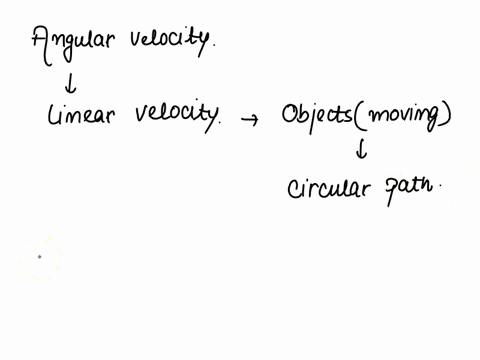 Angular velocity.
↓
Linear velocity. → Objects (moving)
↓
Circular path.